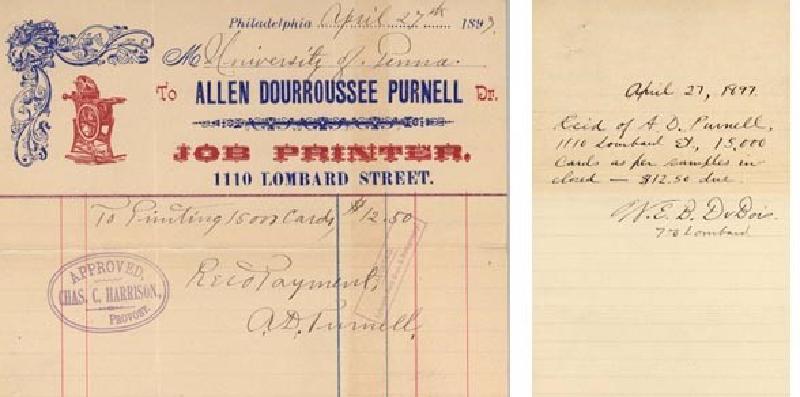 Philadelphia April 27th 1897.
M University of Penna.
To ALLEN DOURROUSSEE PURNELL Dr.
JOB PRINTER.
1110 LOMBARD STREET.
To Printing 15000 Cards $12.50
APPROVED,
CHAS. C. HARRISON,
PROVOST.
Recd Payment,
A.D. Purnell
April 27, 1897.
Recd of A. D. Purnell,
1110 Lombard St, 15,000
cards as per samples in
closed — $12.50 due.
W. E. B. DuBois.
Lombard